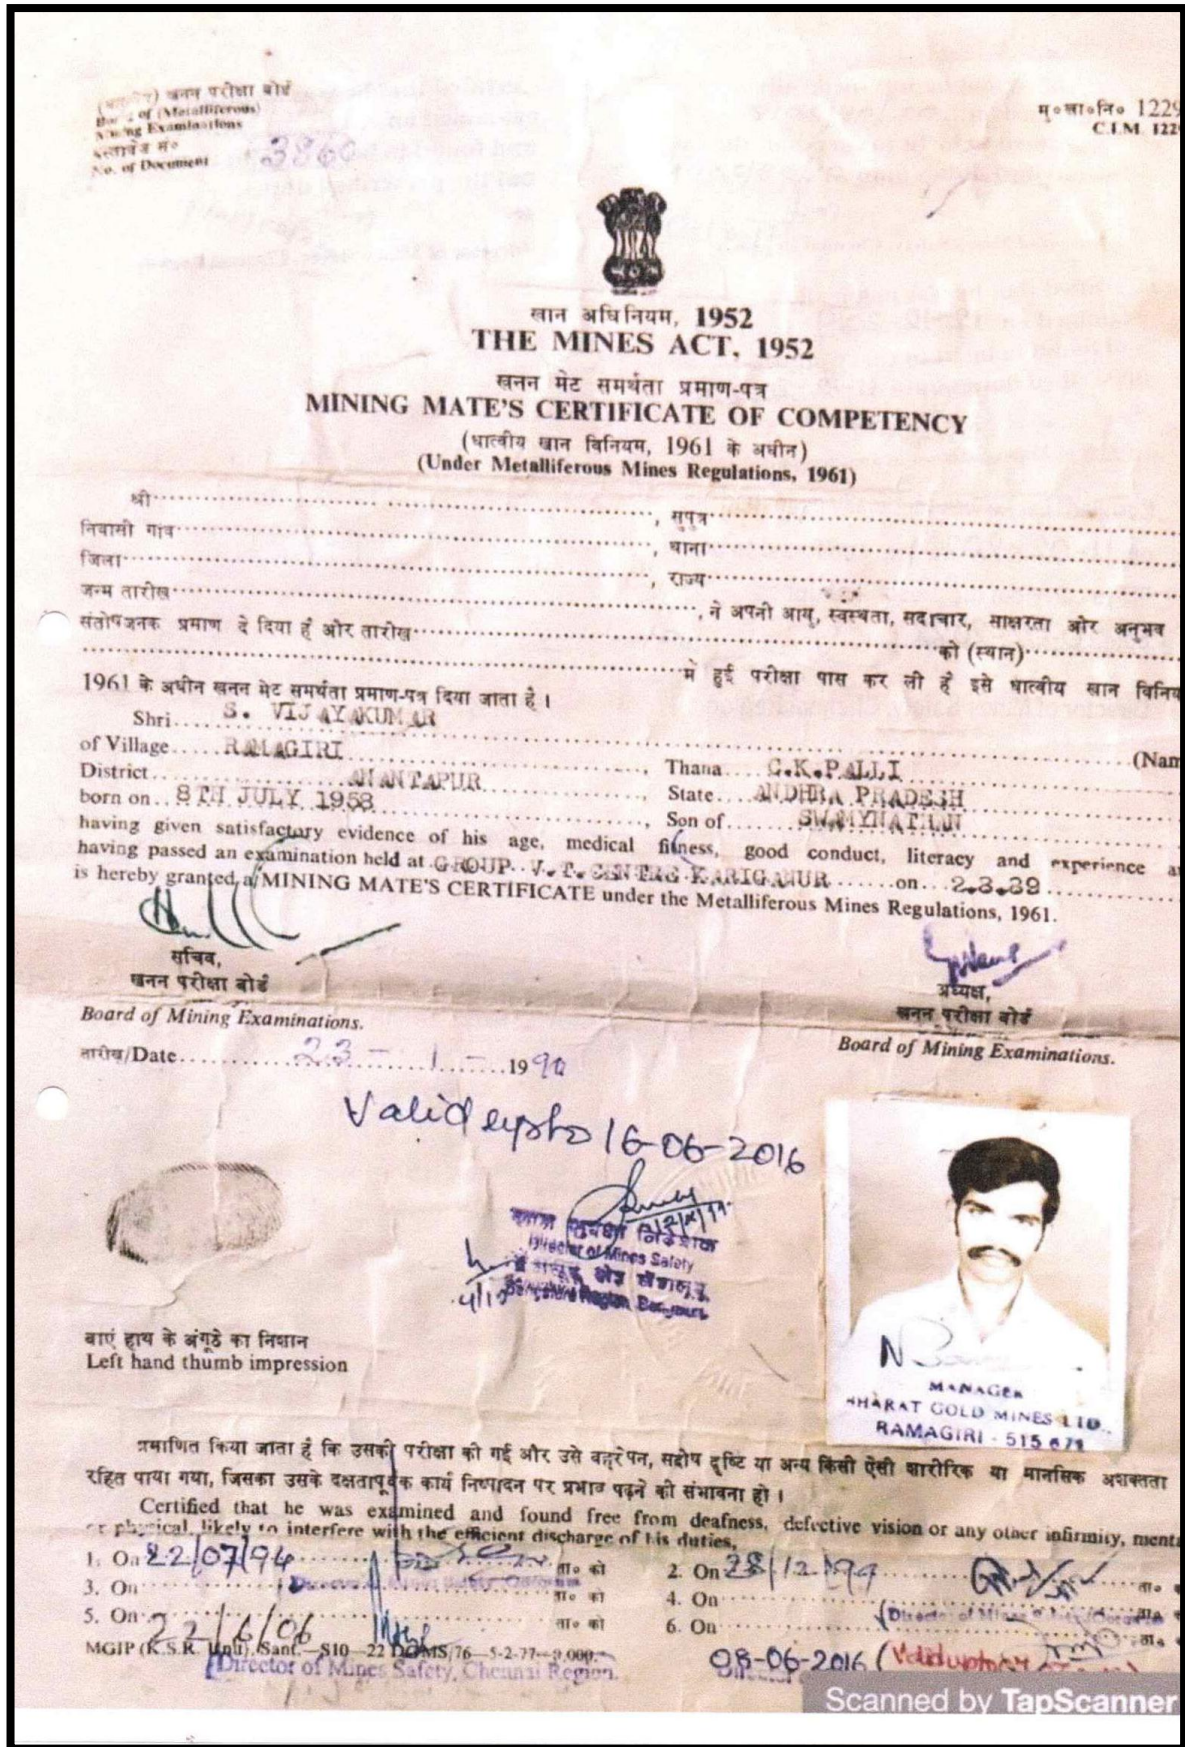 खनन परीक्षा बोर्ड
of (Metalliferous)
Mining Examinations
No. of Document 3860
मु०खा०नि० 1229
C.I.M. 1229
खान अधिनियम, 1952
THE MINES ACT, 1952
खनन मेट समर्थता प्रमाण-पत्र
MINING MATE'S CERTIFICATE OF COMPETENCY
(धात्वीय खान विनियम, 1961 के अधीन)
(Under Metalliferous Mines Regulations, 1961)
श्री , सुपुत्र
निवासी गांव , थाना
जिला , राज्य
जन्म तारीख , ने अपनी आयु, स्वस्थता, सदाचार, साक्षरता और अनुभव
संतोषजनक प्रमाण दे दिया है और तारीख को (स्थान)
में हुई परीक्षा पास कर ली है इसे धात्वीय खान विनिय
1961 के अधीन खनन मेट समर्थता प्रमाण-पत्र दिया जाता है ।
Shri S. VIJAYAKUMAR (Nam
of Village RAMAGIRI Thana C.K.PALLI
District ANANTAPUR, State ANDHRA PRADESH
born on 8TH JULY 1958, Son of SWAMYNATHAN
having given satisfactory evidence of his age, medical fitness, good conduct, literacy and experience a
having passed an examination held at GROUP V.T.CENTRE KARIGANUR on 2.3.89
is hereby granted a MINING MATE'S CERTIFICATE under the Metalliferous Mines Regulations, 1961.
सचिव,
खनन परीक्षा बोर्ड
Board of Mining Examinations.
अध्यक्ष,
खनन परीक्षा बोर्ड
Board of Mining Examinations.
तारीख/Date 23-1-1990
Valid upto 16-06-2016
Director of Mines Safety
बाएं हाथ के अंगूठे का निशान
Left hand thumb impression
MANAGER
BHARAT GOLD MINES LTD.,
RAMAGIRI - 515 671
प्रमाणित किया जाता है कि उसकी परीक्षा की गई और उसे बहरेपन, सदोष दृष्टि या अन्य किसी ऐसी शारीरिक या मानसिक अशक्तता
रहित पाया गया, जिसका उसके दक्षतापूर्वक कार्य निष्पादन पर प्रभाव पढ़ने की संभावना हो ।
Certified that he was examined and found free from deafness, defective vision or any other infirmity, menta
or physical, likely to interfere with the efficient discharge of his duties,
1. On 22/07/94 ता० को 2. On 28/12/99 ता०
3. On ता० को 4. On
5. On 22/6/06 ता० को 6. On ता०
MGIP (K.S.R. Unit), Sant.—S10—22 DGMS/76—5-2-77—9,000.
Director of Mines Safety, Chennai Region.
08-06-2016 (Valid upto
Scanned by TapScanner